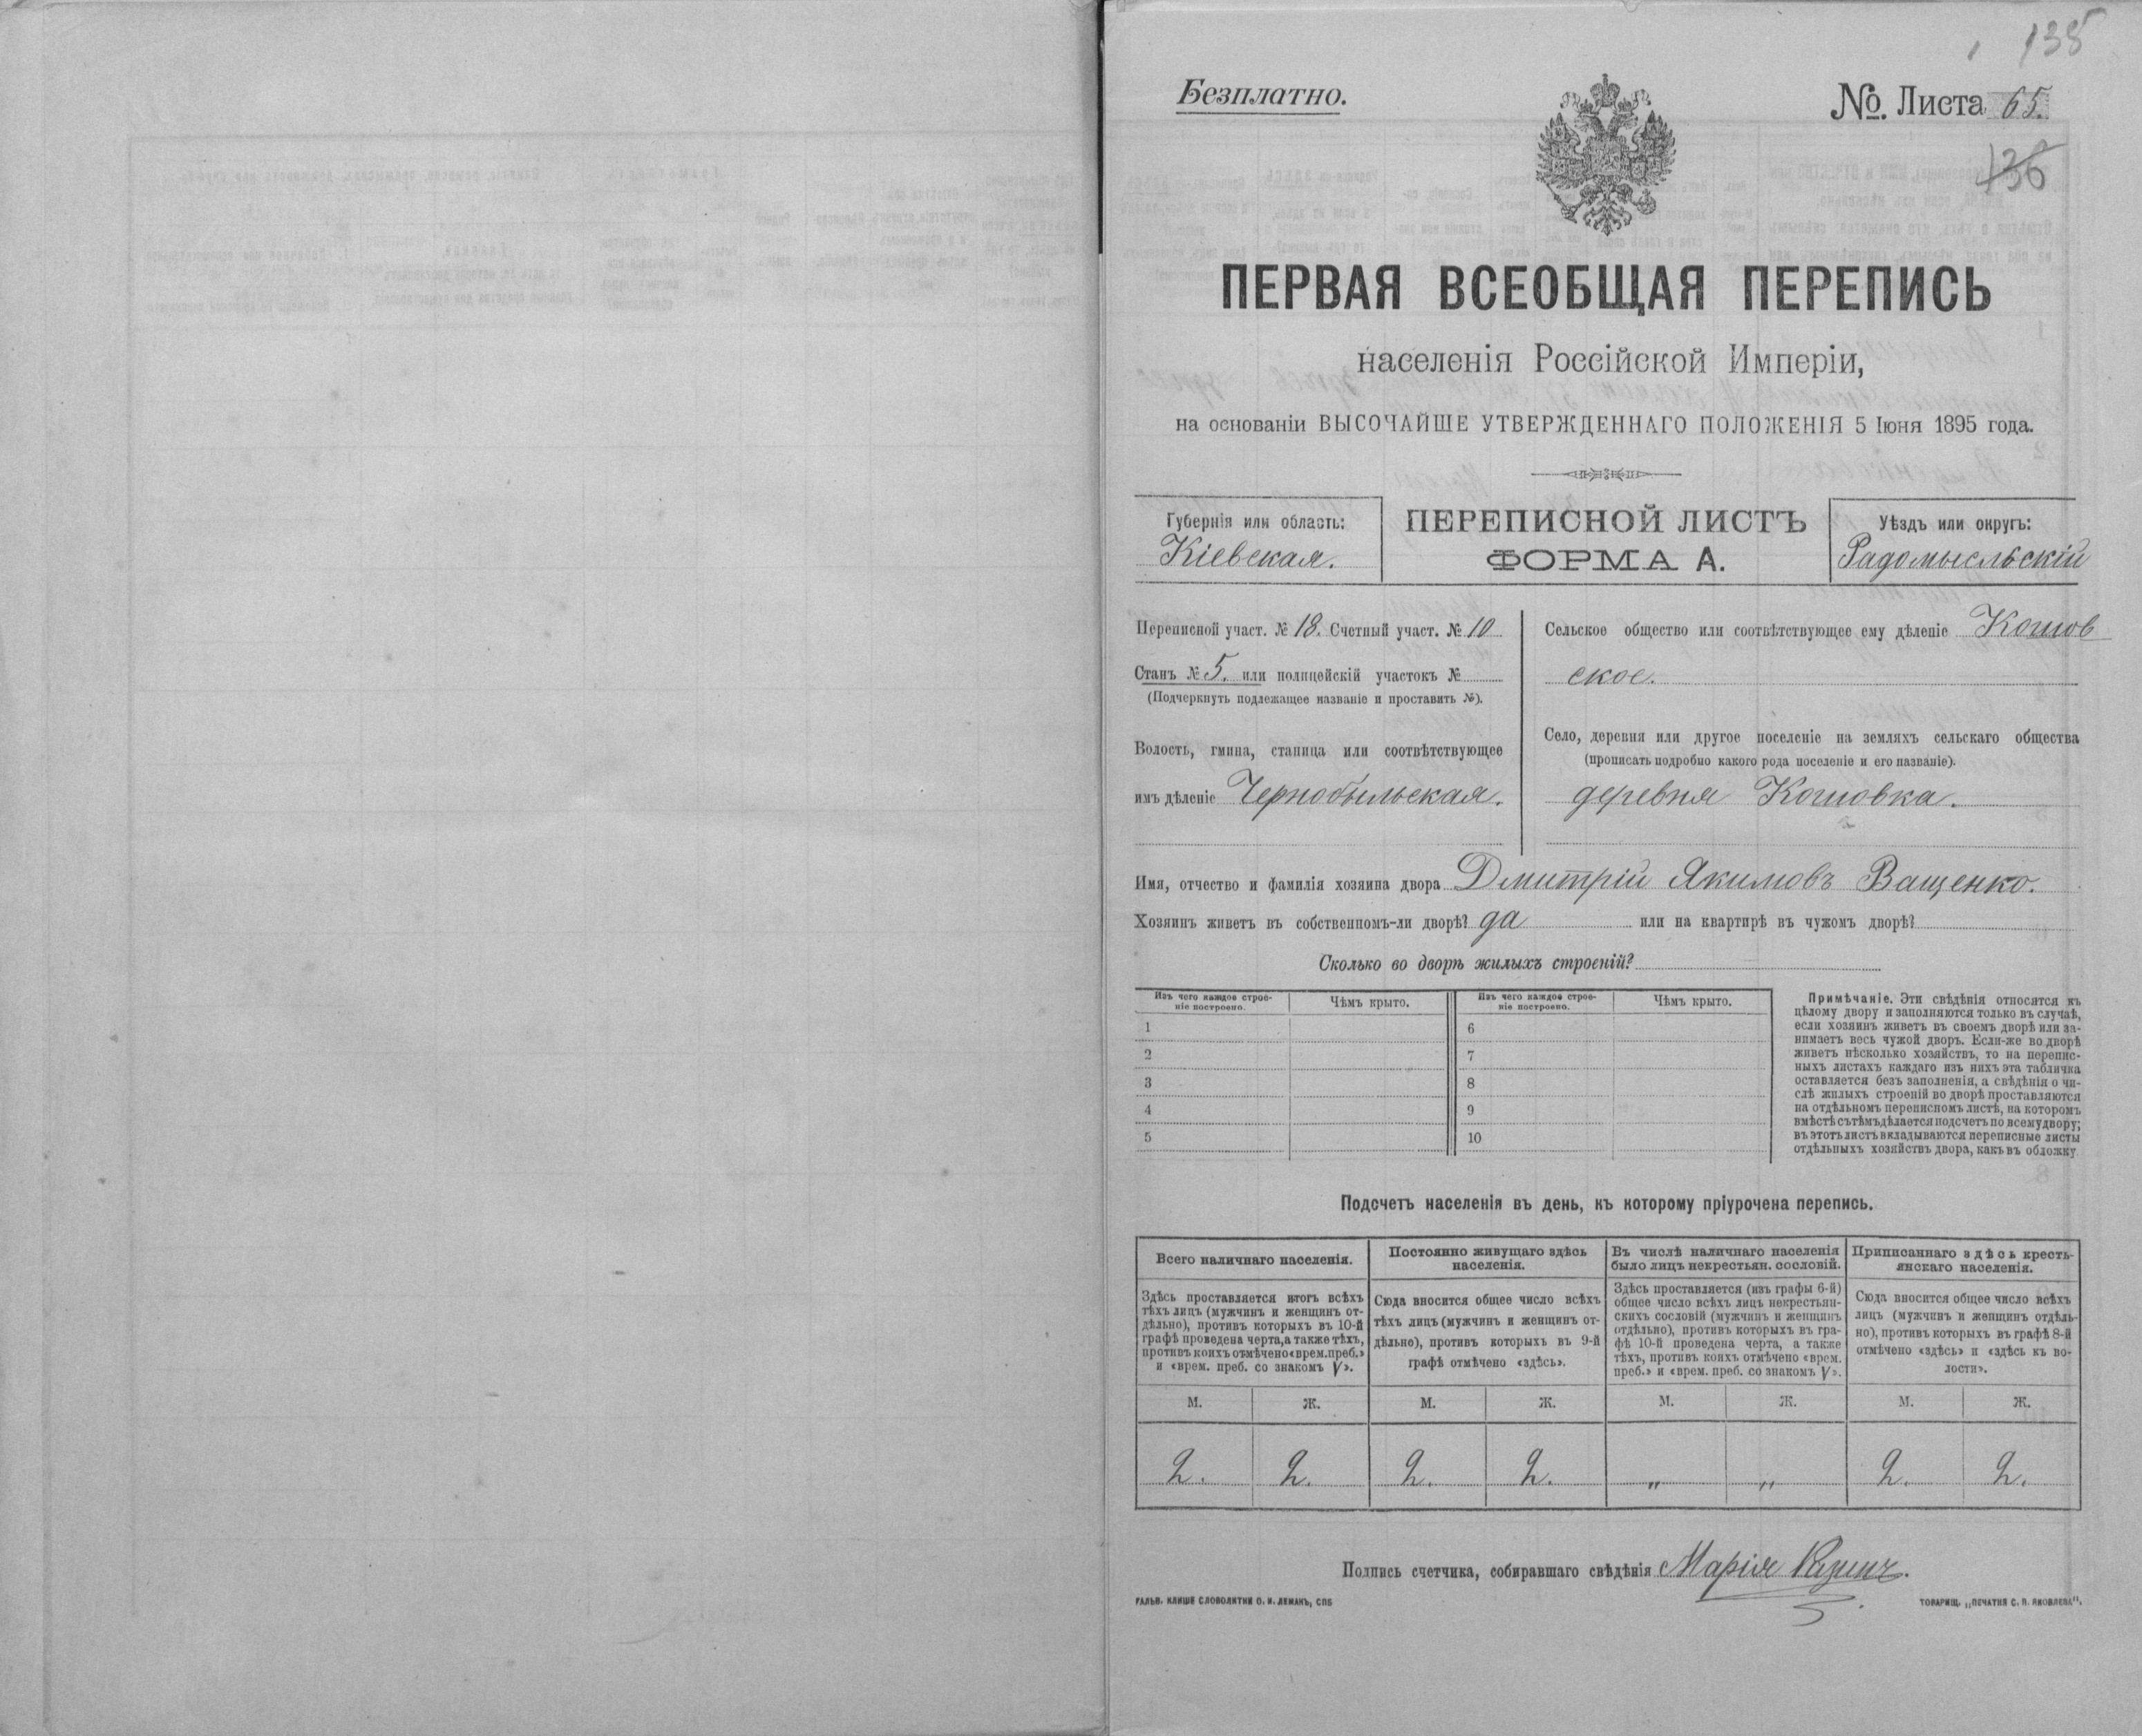 135
Безплатно.
№. Листа 65.
136
ПЕРВАЯ ВСЕОБЩАЯ ПЕРЕПИСЬ
населенія Россійской Имперіи,
на основаніи ВЫСОЧАЙШЕ УТВЕРЖДЕННАГО ПОЛОЖЕНІЯ 5 Іюня 1895 года.
Губернія или область:
Кіевская.
ПЕРЕПИСНОЙ ЛИСТЪ
ФОРМА А.
Уѣздъ или округъ:
Радомысльскій
Переписной участ. № 18. Счетный участ. № 10
Станъ № 5. или полицейскій участокъ №
(Подчеркнуть подлежащее названіе и проставить №).
Волость, гмина, станица или соотвѣтствующее
имъ дѣленіе Чернобыльская.
Сельское общество или соотвѣтствующее ему дѣленіе Кошов
ское.
Село, деревня или другое поселеніе на земляхъ сельскаго общества
(прописать подробно какого рода поселеніе и его названіе).
деревня Кошовка.
Имя, отчество и фамилія хозяина двора Дмитрій Якимовъ Ващенко.
Хозяинъ живетъ въ собственномъ-ли дворѣ? да или на квартирѣ въ чужомъ дворѣ?
Сколько во дворѣ жилыхъ строеній?
Изъ чего каждое строе-
ніе построено.
Чѣмъ крыто.
Изъ чего каждое строе-
ніе построено.
Чѣмъ крыто.
1 6
2 7
3 8
4 9
5 10
Примѣчаніе. Эти свѣдѣнія относятся къ
цѣлому двору и заполняются только въ случаѣ,
если хозяинъ живетъ въ своемъ дворѣ или за-
нимаетъ весь чужой дворъ. Если-же во дворѣ
живетъ нѣсколько хозяйствъ, то на перепис-
ныхъ листахъ каждаго изъ нихъ эта табличка
оставляется безъ заполненія, а свѣдѣнія о чи-
слѣ жилыхъ строеній во дворѣ проставляются
на отдѣльномъ переписномъ листѣ, на которомъ
вмѣстѣ съ тѣмъ дѣлается подсчетъ по всему двору;
въ этотъ листъ вкладываются переписные листы
отдѣльныхъ хозяйствъ двора, какъ въ обложку
Подсчетъ населенія въ день, къ которому пріурочена перепись.
Всего наличнаго населенія.
Здѣсь проставляется итогъ всѣхъ
тѣхъ лицъ (мужчинъ и женщинъ от-
дѣльно), противъ которыхъ въ 10-й
графѣ проведена черта, а также тѣхъ,
противъ коихъ отмѣчено «врем. преб.»
и «врем. преб. со знакомъ V».
Постоянно живущаго здѣсь
населенія.
Сюда вносится общее число всѣхъ
тѣхъ лицъ (мужчинъ и женщинъ от-
дѣльно), противъ которыхъ въ 9-й
графѣ отмѣчено «здѣсь».
Въ числѣ наличнаго населенія
было лицъ некрестьян. сословій.
Здѣсь проставляется (изъ графы 6-й)
общее число всѣхъ лицъ некрестьян-
скихъ сословій (мужчинъ и женщинъ
отдѣльно), противъ которыхъ въ гра-
фѣ 10-й проведена черта, а также
тѣхъ, противъ коихъ отмѣчено «врем.
преб.» и «врем. преб. со знакомъ V».
Приписаннаго здѣсь кресть-
янскаго населенія.
Сюда вносится общее число всѣхъ
лицъ (мужчинъ и женщинъ отдѣль-
но), противъ которыхъ въ графѣ 8-й
отмѣчено «здѣсь» и «здѣсь къ во-
лости».
М. Ж. М. Ж. М. Ж. М. Ж.
2. 2. 2. 2. " " 2. 2.
Подпись счетчика, собиравшаго свѣдѣнія Марія
ГАЛЬВ. КЛИШЕ СЛОВОЛИТНИ О. И. ЛЕМАНЪ, СПБ
ТОВАРИЩ. „ПЕЧАТНЯ С. П. ЯКОВЛЕВА".